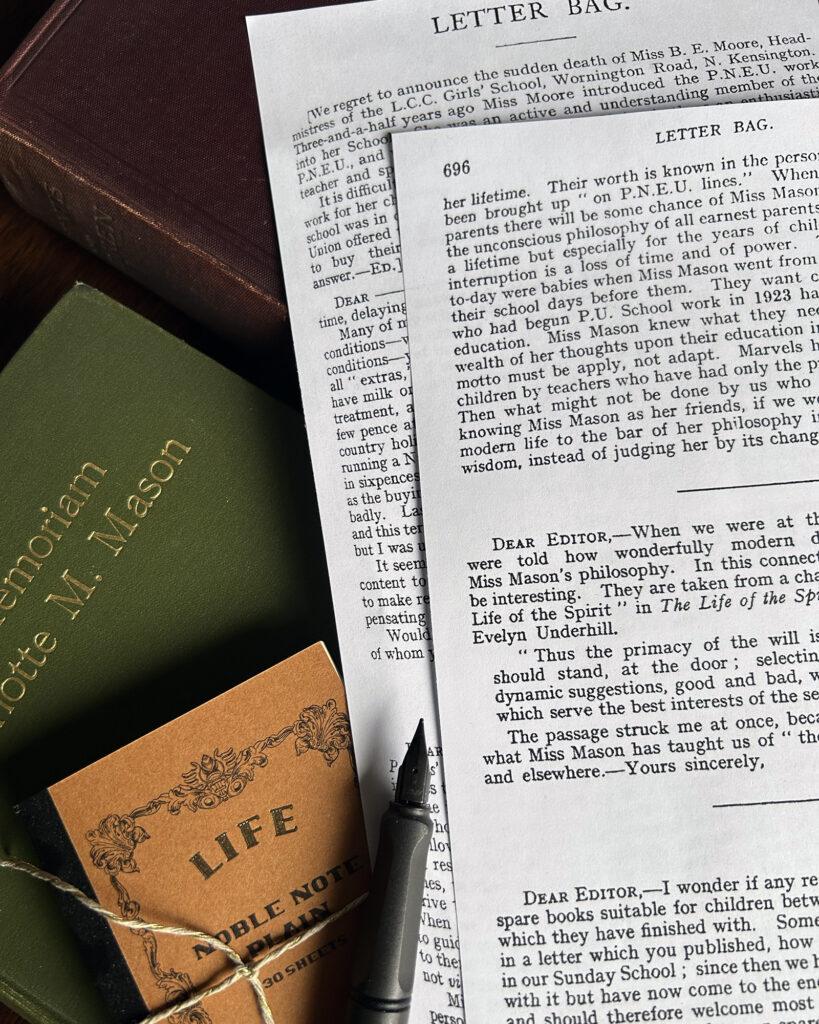 LETTER BAG.
[We regret to announce the sudden death of Miss B. E. Moore, Head-
mistress of the L.C.C. Girls' School, Wornington Road, N. Kensington.
Three-and-a-half years ago Miss Moore introduced the P.N.E.U. work
into her School. She was an active and understanding member of the
P.N.E.U., and enthusiasti
teacher and sp
It is difficul
work for her c
school was in
Union offered
to buy their
answer.—ED.]
DEAR —
time, delaying
Many of
conditions—
conditions—
all " extras,
have milk or
treatment, a
few pence a
country hol
running a N
in sixpences
as the buyin
badly. La
and this te
but I was u
It seem
content to
to make re
pensating
Would
of whom y
LETTER BAG.
696
her lifetime. Their worth is known in the perso
been brought up " on P.N.E.U. lines." When
parents there will be some chance of Miss Mason
the unconscious philosophy of all earnest parents
a lifetime but especially for the years of chil
interruption is a loss of time and of power.
to-day were babies when Miss Mason went from
their school days before them. They want c
who had begun P.U. School work in 1923 ha
education. Miss Mason knew what they nee
wealth of her thoughts upon their education in
motto must be apply, not adapt. Marvels h
children by teachers who have had only the p
Then what might not be done by us who
knowing Miss Mason as her friends, if we we
modern life to the bar of her philosophy i
wisdom, instead of judging her by its chang
DEAR EDITOR,—When we were at th
were told how wonderfully modern d
Miss Mason's philosophy. In this connect
be interesting. They are taken from a cha
Life of the Spirit " in The Life of the Spi
Evelyn Underhill.
" Thus the primacy of the will is
should stand, at the door ; selectin
dynamic suggestions, good and bad, w
which serve the best interests of the se
The passage struck me at once, beca
what Miss Mason has taught us of " the
and elsewhere.—Yours sincerely,
DEAR EDITOR,—I wonder if any re
spare books suitable for children betw
which they have finished with. Some
in a letter which you published, how
in our Sunday School ; since then we h
with it but have now come to the en
and should therefore welcome most
emoriam
lotte M. Mason
LIFE
NOBLE NOTE
PLAIN
30 SHEETS